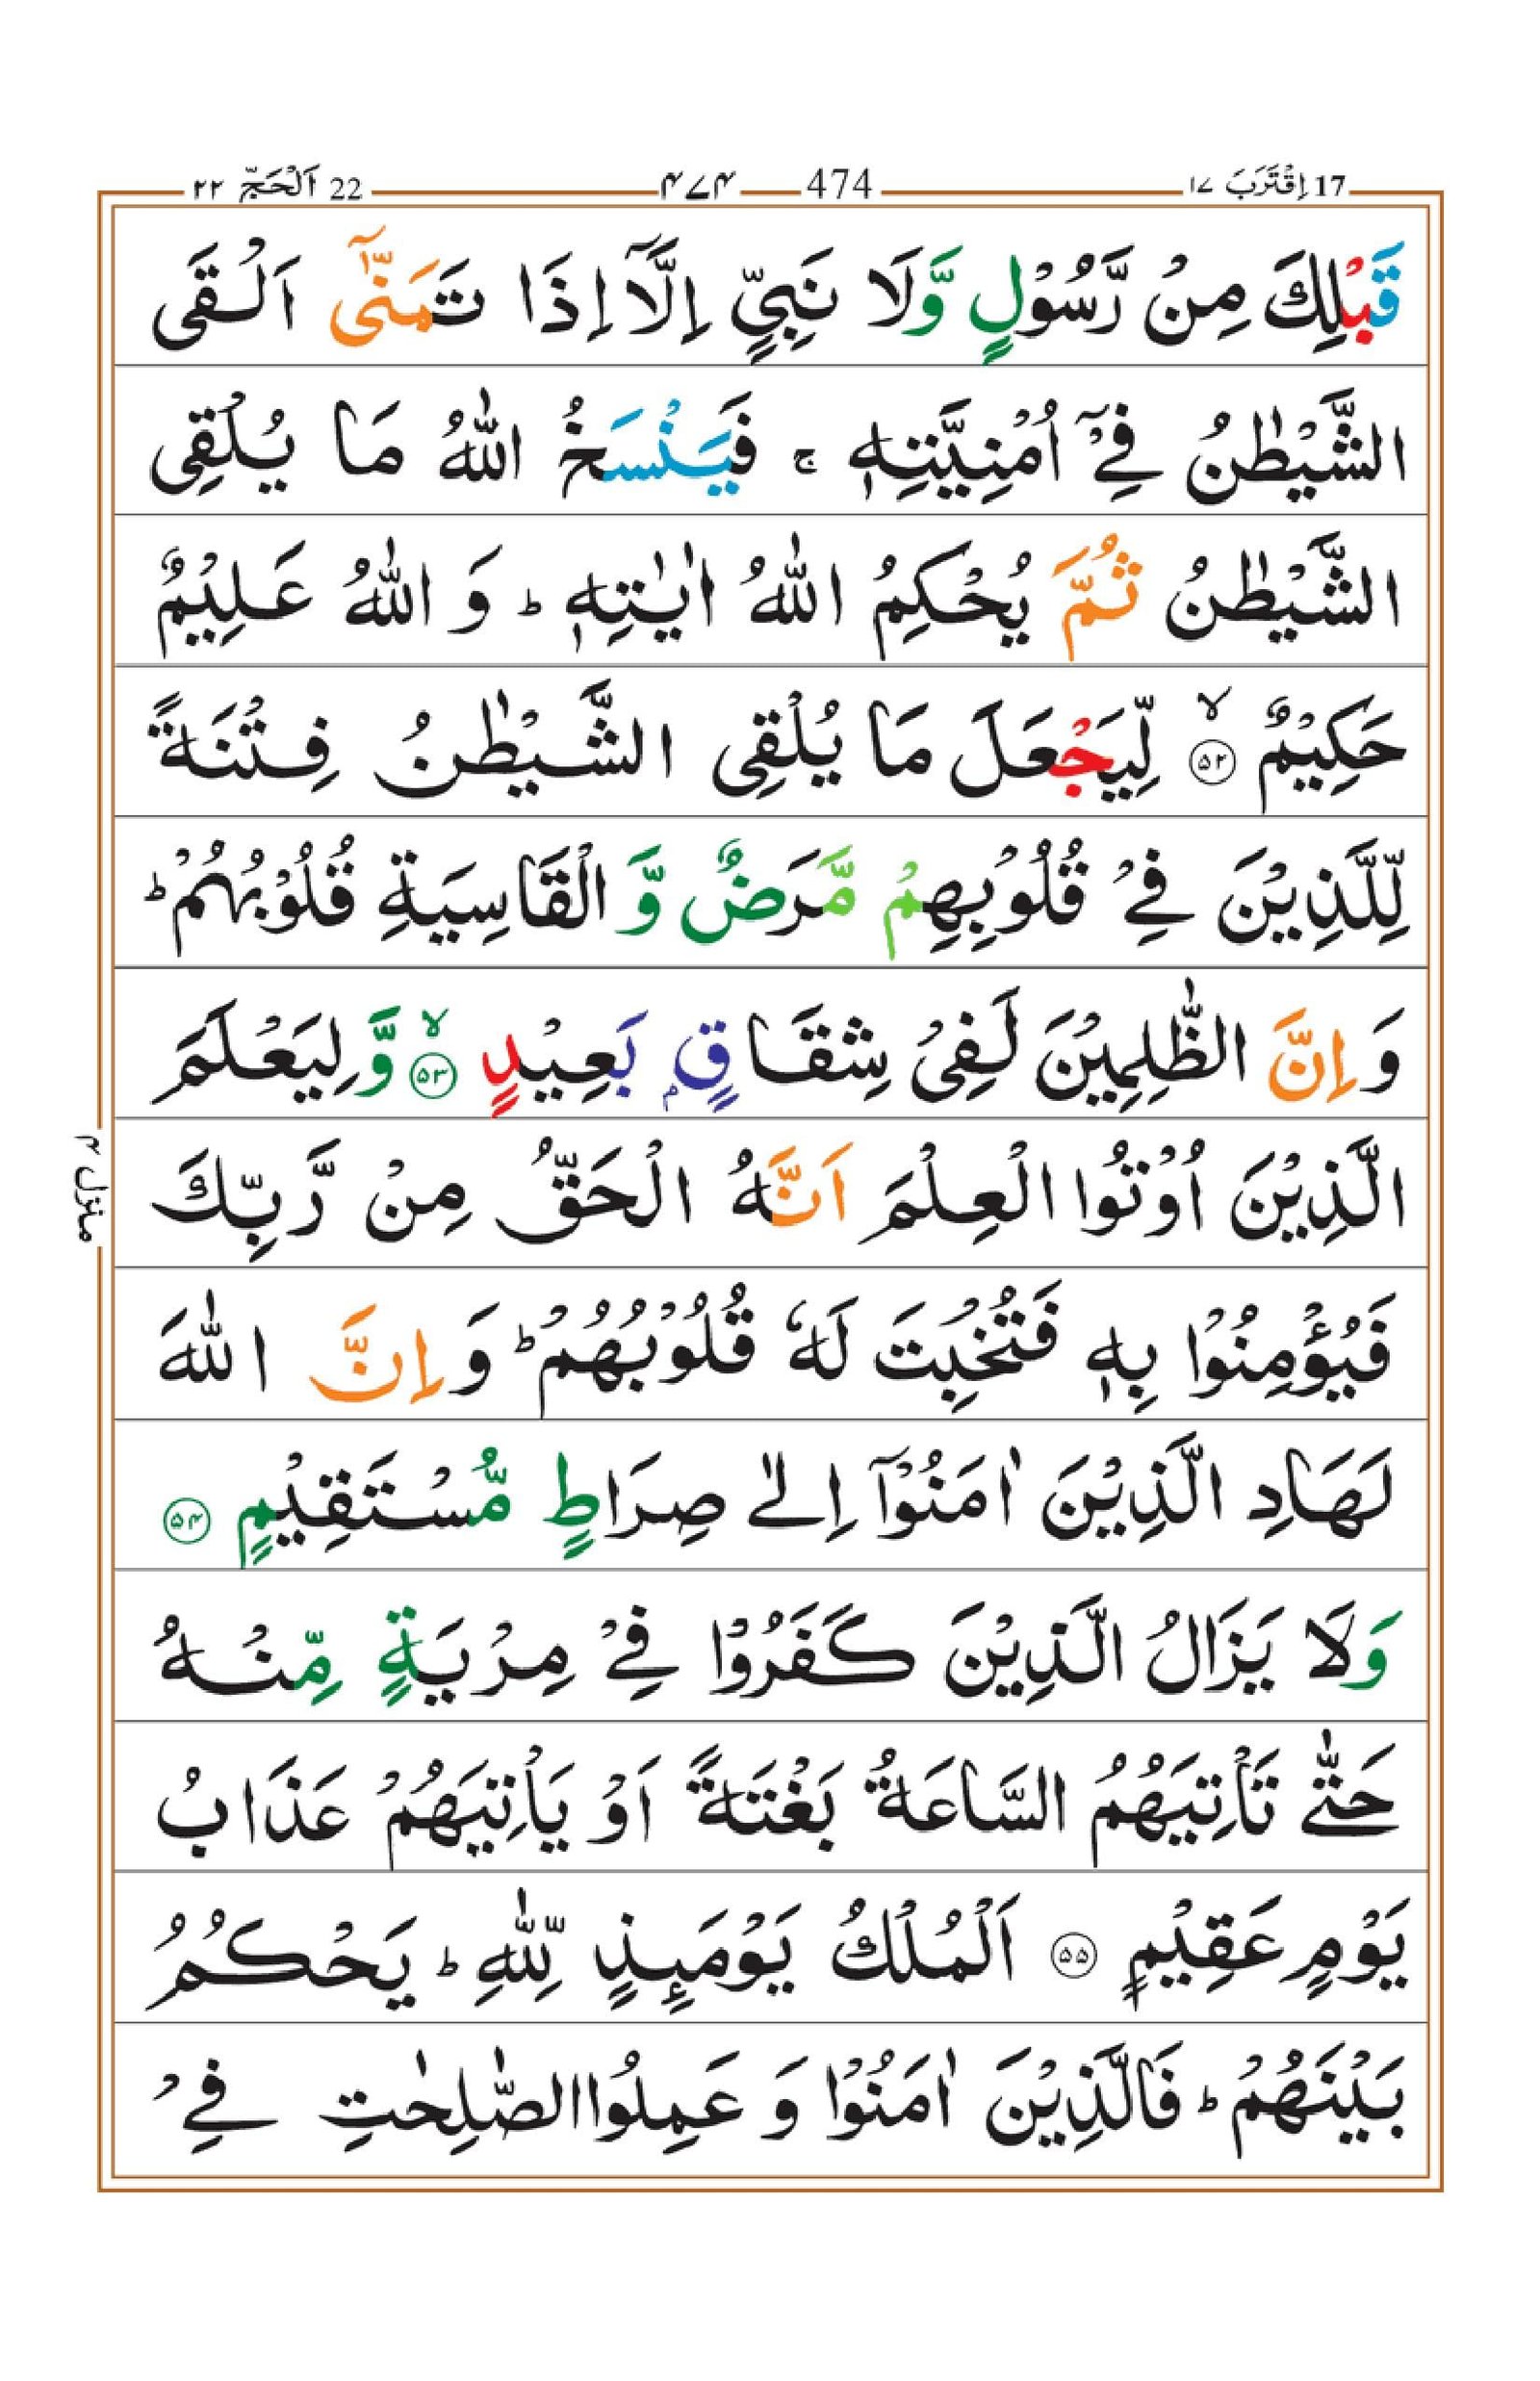 17 اِقْتَرَبَ ١٧ 474 ۴۷۴ 22 اَلْحَجّ ٢٢
قَبْلِكَ مِنْ رَّسُوْلٍ وَّلَا نَبِيٍّ اِلَّاۤ اِذَا تَمَنّٰۤى اَلْقَى
الشَّيْطٰنُ فِيْۤ اُمْنِيَّتِهٖ ۚ فَيَنْسَخُ اللّٰهُ مَا يُلْقِى
الشَّيْطٰنُ ثُمَّ يُحْكِمُ اللّٰهُ اٰيٰتِهٖ ؕ وَ اللّٰهُ عَلِيْمٌ
حَكِيْمٌ ۙ۵۲ لِّيَجْعَلَ مَا يُلْقِى الشَّيْطٰنُ فِتْنَةً
لِّلَّذِيْنَ فِيْ قُلُوْبِهِمْ مَّرَضٌ وَّ الْقَاسِيَةِ قُلُوْبُهُمْ ؕ
وَ اِنَّ الظّٰلِمِيْنَ لَفِيْ شِقَاقٍۭ بَعِيْدٍ ۙ۵۳ وَّلِيَعْلَمَ
الَّذِيْنَ اُوْتُوا الْعِلْمَ اَنَّهُ الْحَقُّ مِنْ رَّبِّكَ
فَيُؤْمِنُوْا بِهٖ فَتُخْبِتَ لَهٗ قُلُوْبُهُمْ ؕ وَ اِنَّ اللّٰهَ
لَهَادِ الَّذِيْنَ اٰمَنُوْۤا اِلٰى صِرَاطٍ مُّسْتَقِيْمٍ ۵۴
وَلَا يَزَالُ الَّذِيْنَ كَفَرُوْا فِيْ مِرْيَةٍ مِّنْهُ
حَتّٰى تَاْتِيَهُمُ السَّاعَةُ بَغْتَةً اَوْ يَاْتِيَهُمْ عَذَابُ
يَوْمٍ عَقِيْمٍ ۵۵ اَلْمُلْكُ يَوْمَىِٕذٍ لِّلّٰهِ ؕ يَحْكُمُ
بَيْنَهُمْ ؕ فَالَّذِيْنَ اٰمَنُوْا وَ عَمِلُوا الصّٰلِحٰتِ فِيْ
منزل ۴